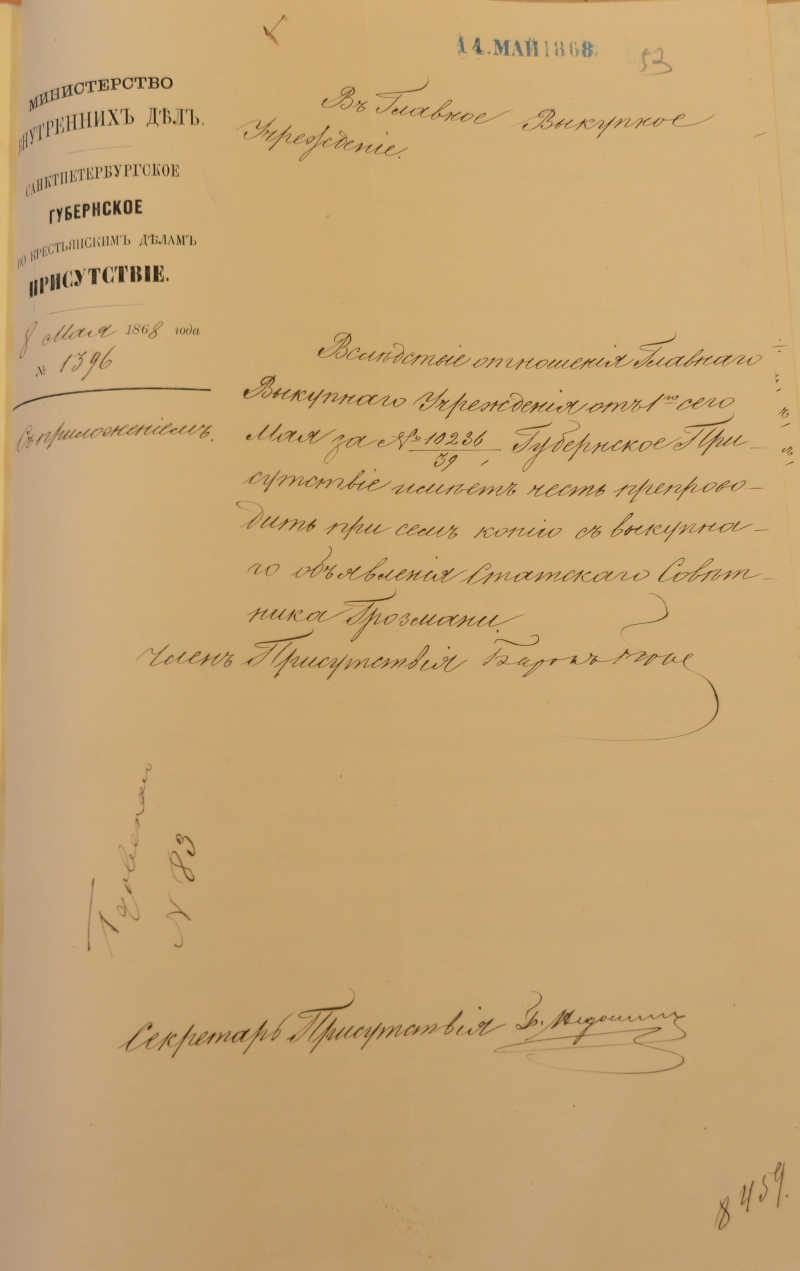 14. МАЙ 1868
53
МИНИСТЕРСТВО
ВНУТРЕННИХЪ ДѢЛЪ.
САНКТПЕТЕРБУРГСКОЕ
ГУБЕРНСКОЕ
ПО КРЕСТЬЯНСКИМЪ ДѢЛАМЪ
ПРИСУТСТВІЕ.
8 Мая 1868 года
№ 1396
Съ приложеніемъ.
Въ Главное Выкупное
Учрежденіе.
Вслѣдствіе отношенія Главнаго
Выкупнаго Учрежденія отъ 1го сего
Мая за № 10236/39, Губернское При-
сутствіе имѣетъ честь препрово-
дить при семъ копію съ выкупна-
го объявленія Статскаго Совѣт-
ника Грозмани.
Членъ Присутствія Баронъ
N 83
Секретарь Присутствія
8459.